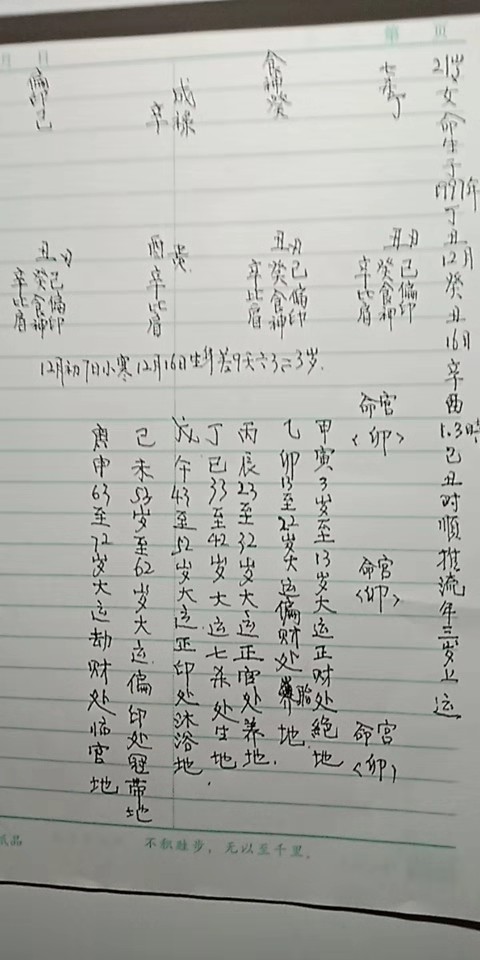 第 页
月 日
21岁女命生于1997年丁丑12月癸丑16日辛酉1.3时己丑时顺推流年三岁上运
七杀丁
食神癸
辛
偏印己
丑
己偏印
癸食神
辛比肩
丑
己偏印
癸食神
辛比肩
酉
辛比肩
丑
己偏印
癸食神
辛比肩
12月初7日小寒12月16日生
3岁.
命宫<卯>
命宫<卯>
命宫<卯>
甲寅3岁至13岁大运正财处绝地
乙卯13至22岁大运偏财处胎地.
丙辰23至32岁大运正官处养地.
丁巳33至42岁大运七杀处生地.
戊午43至52岁大运正印处沐浴地
己未53岁至62岁大运偏印处冠带地
庚申63至72岁大运劫财处临官地
纸品
不积跬步，无以至千里.